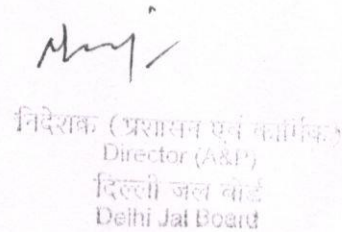 निदेशक (प्रशासन एवं कार्मिक)
Director (A&P)
दिल्ली जल बोर्ड
Delhi Jal Board